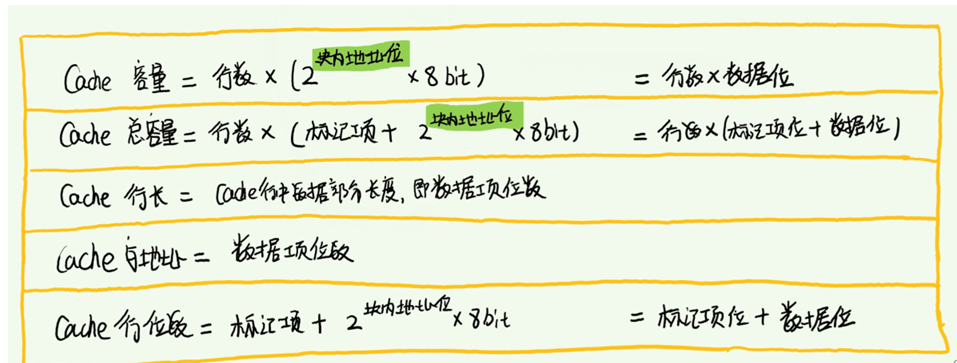 Cache 容量 = 行数 × (2^块内地址位 × 8 bit) = 行数 × 数据位
Cache 总容量 = 行数 × (标记项 + 2^块内地址位 × 8bit) = 行数 × (标记项位 + 数据位)
Cache 行长 = Cache行中数据部分长度, 即数据项位数
Cache 地址 = 数据项位数
Cache 行位数 = 标记项 + 2^块内地址位 × 8bit = 标记项位 + 数据位